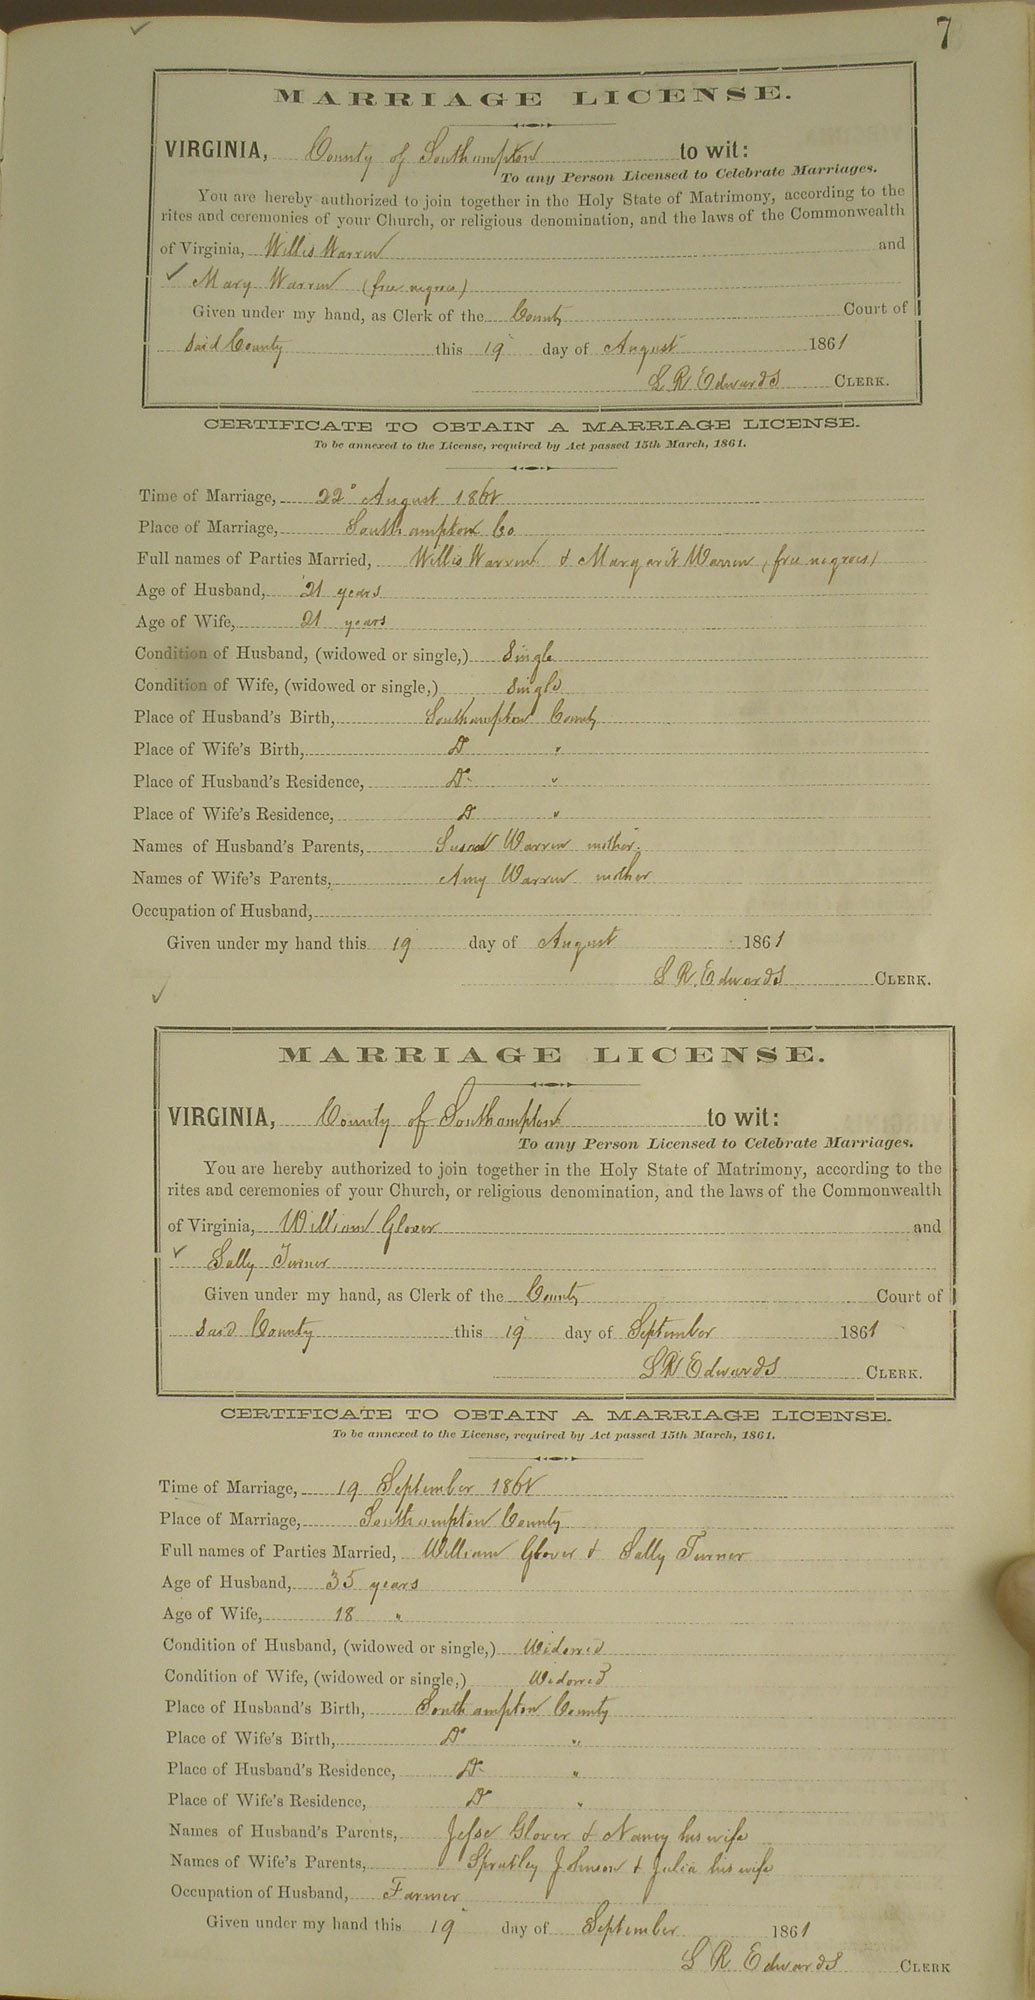 7
MARRIAGE LICENSE.
VIRGINIA, County of Southampton to wit:
To any Person Licensed to Celebrate Marriages.
You are hereby authorized to join together in the Holy State of Matrimony, according to the
rites and ceremonies of your Church, or religious denomination, and the laws of the Commonwealth
of Virginia, Willis Warren and
Mary Warren (free negroes)
Given under my hand, as Clerk of the County Court of
said County this 19 day of August 1861
L R Edwards CLERK.
CERTIFICATE TO OBTAIN A MARRIAGE LICENSE.
To be annexed to the License, required by Act passed 15th March, 1861.
Time of Marriage, 22d August 1861
Place of Marriage, Southampton Co
Full names of Parties Married, Willis Warren & Margaret Warren (free negroes)
Age of Husband, 21 years
Age of Wife, 21 years
Condition of Husband, (widowed or single,) Single
Condition of Wife, (widowed or single,) Single
Place of Husband's Birth, Southampton County
Place of Wife's Birth, Do "
Place of Husband's Residence, Do "
Place of Wife's Residence, Do "
Names of Husband's Parents, Susan Warren mother.
Names of Wife's Parents, Amy Warren mother
Occupation of Husband,
Given under my hand this 19 day of August 1861
L R. Edwards CLERK.
MARRIAGE LICENSE.
VIRGINIA, County of Southampton to wit:
To any Person Licensed to Celebrate Marriages.
You are hereby authorized to join together in the Holy State of Matrimony, according to the
rites and ceremonies of your Church, or religious denomination, and the laws of the Commonwealth
of Virginia, William Glover and
Sally Turner
Given under my hand, as Clerk of the County Court of
said County this 19 day of September 1861
L R Edwards CLERK.
CERTIFICATE TO OBTAIN A MARRIAGE LICENSE.
To be annexed to the License, required by Act passed 15th March, 1861.
Time of Marriage, 19 September 1861
Place of Marriage, Southampton County
Full names of Parties Married, William Glover & Sally Turner
Age of Husband, 35 years
Age of Wife, 18 "
Condition of Husband, (widowed or single,) Widowed
Condition of Wife, (widowed or single,) Widowed
Place of Husband's Birth, Southampton County
Place of Wife's Birth, Do "
Place of Husband's Residence, Do "
Place of Wife's Residence, Do "
Names of Husband's Parents, Jesse Glover & Nancy his wife
Names of Wife's Parents, Spratley Johnson & Julia his wife
Occupation of Husband, Farmer
Given under my hand this 19 day of September 1861
L R. Edwards CLERK